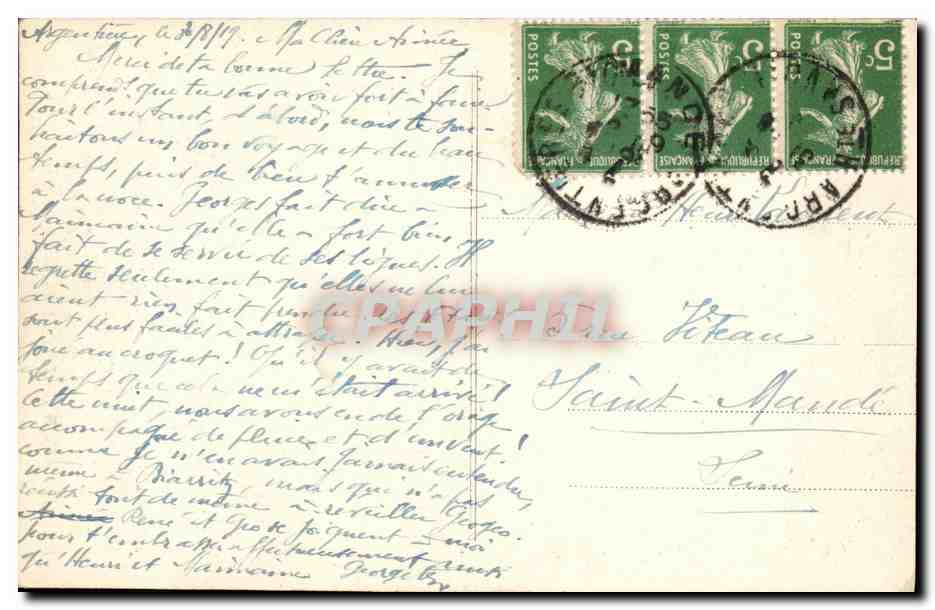 Argentière le 3/8/19. Ma Chère Aimée
Merci de ta bonne lettre. Je
comprends que tu vas avoir fort à faire
pour l'instant, d'abord, mais te sou-
haitons un bon voyage et du beau
temps, puis de bien t'amuser
à la noce. Georges fait dire à
Mainaine qu'elle a fort bien
fait de se servir de ses lignes. Il
regrette seulement qu'elles ne lui
aient rien fait prendre
sont plus faciles à attraper. Hier, j'ai
joué au croquet! Qu'il y avait de
temps que cela ne m'était arrivé!
Cette nuit, nous avons eu de l'orage
accompagné de pluie et d'un vent!
comme je n'en avais jamais entendu,
même à Biarritz, mais qui n'a pas
réussi tout de même à réveiller Geogeo.
René et Geo se joignent à moi
pour t'embrasser affectueusement ainsi
qu'Henri et Mainaine Georgette
POSTES
5c
REPUBLIQUE FRANÇAISE
POSTES
5c
REPUBLIQUE FRANÇAISE
POSTES
5c
REPUBLIQUE FRANÇAISE
Henri
3 rue Viteau
Saint-Mandé
Seine
CPAPHIL